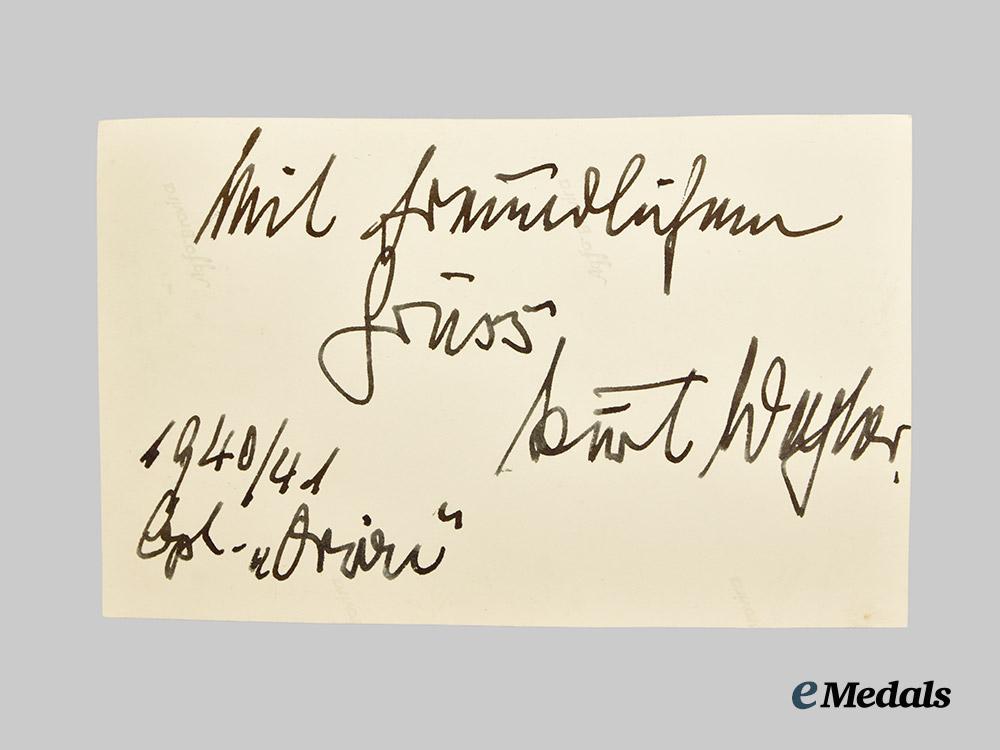 Mit freundlichem
Gruss
Kurt Weyher.
1940/41
"Orion"
eMedals